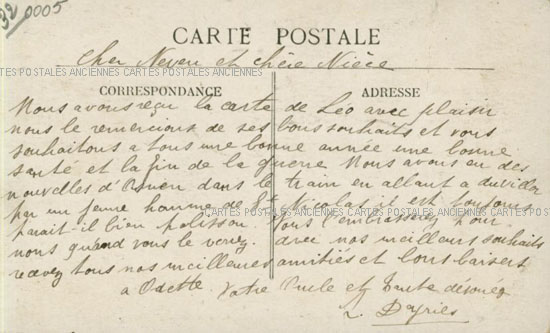 32 0005
CARTE POSTALE
Cher Neveu et chère Nièce
CARTES POSTALES ANCIENNES CARTES POSTALES ANCIENNES
CORRESPONDANCE ADRESSE
Nous avons reçu la carte de Léo avec plaisir
nous le remercions de ses bons souhaits et vous
souhaitons a tous une bonne année une bonne
santé et la fin de la guerre Nous avons eu des
nouvelles d' dans le train en allant a
par un jeune homme de St Nicolas il est toujours
parait-il bien polisson. Vous l'embrasserez pour
nous quand vous le verrez. avec nos meilleurs souhaits
recevez tous nos meilleures amitiés et bons baisers
a Odette. Votre Oncle et Tante dévoués